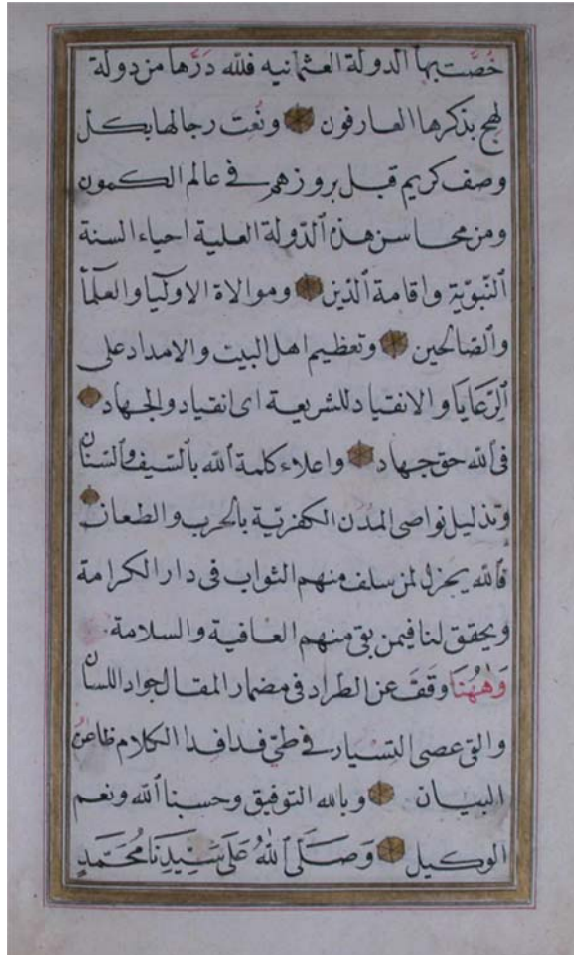 خُصّت بها الدولة العثمانيه فلله دَرّها من دولة
لهج بذكرها العارفون ونُعِت رجالها بكل
وصف كريم قبل بروزهم فى عالم الكمون
ومن محاسن هذه الدّولة العلية احياء السنة
النّبويّة واقامة الدّين وموالاة الاوليا والعلمآ
والصّالحين وتعظيم اهل البيت والامداد على
الرّعايا والانقياد للشريعة اى انقياد والجهاد
فى الله حق جهاد واعلاء كلمة الله بالسّيف والسّنان
وتذليل نواصى المدن الكفريّة بالحرب والطعان
فالله يجزل لمن سلف منهم الثواب فى دار الكرامة
ويحقق لنا فيمن بقى منهم العافية والسلامة
وَهٰهُنَا وَقَفَ عن الطراد فى مضمار المقال جواد اللسان
والقى عصى التسيار فى طىّ فدافد الكلام ظاعن
البيان وبالله التوفيق وحسبنا الله ونعم
الوكيل وَصَلَّى ٱللّٰهُ عَلَى سَيِّدِنَا مُحَمَّدٍ